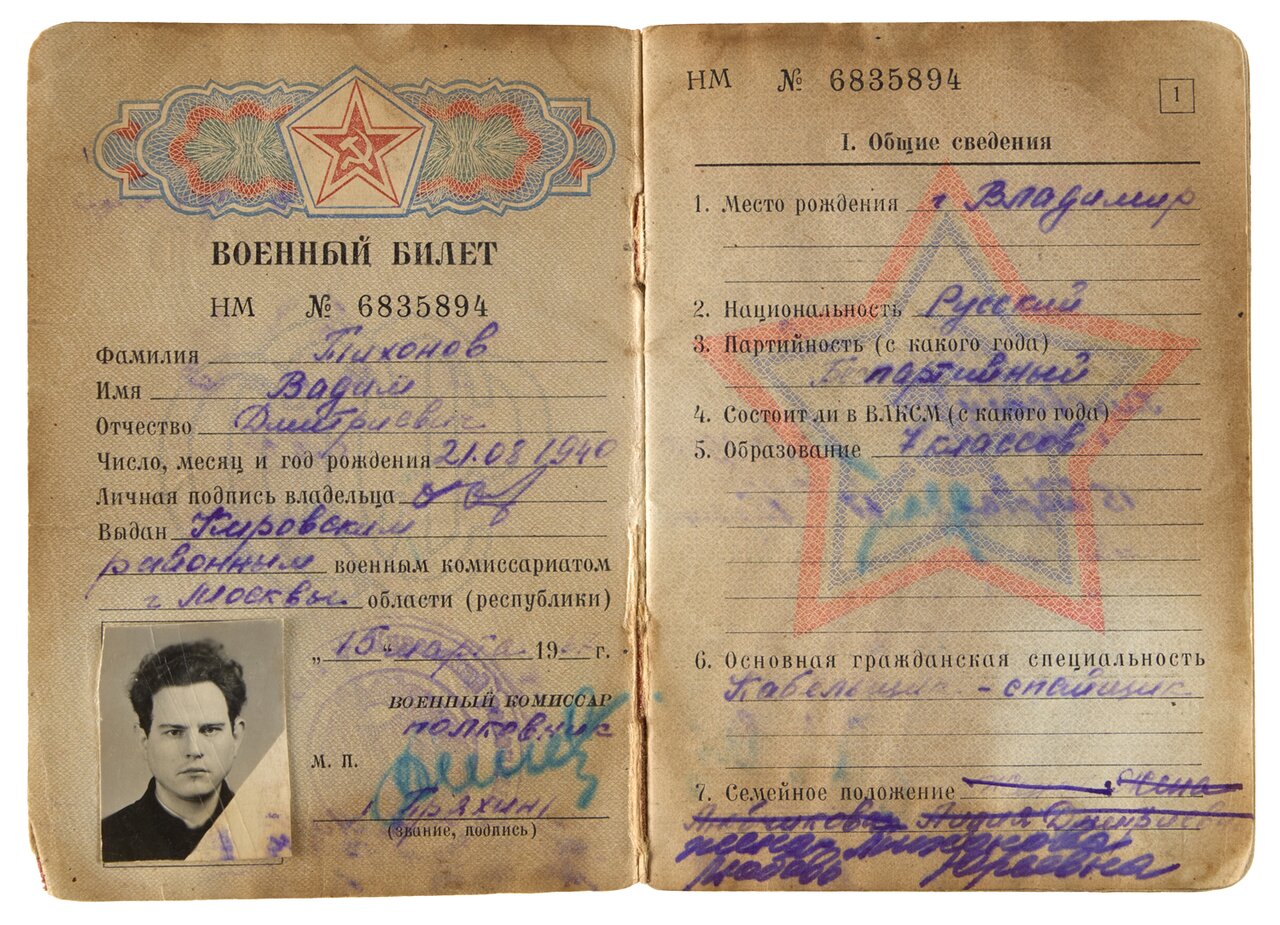 ВОЕННЫЙ БИЛЕТ
НМ № 6835894
Фамилия Тихонов
Имя Вадим
Отчество Дмитриевич
Число, месяц и год рождения 21.08 1940
Личная подпись владельца
Выдан Кировским
районным военным комиссариатом
г Москвы области (республики)
„15“ марта 19 г.
ВОЕННЫЙ КОМИССАР
полковник
М. П.
(звание, подпись)
НМ № 6835894
1
I. Общие сведения
1. Место рождения г Владимир
2. Национальность Русский
3. Партийность (с какого года)
партийный
4. Состоит ли в ВЛКСМ (с какого года)
5. Образование 7 классов
6. Основная гражданская специальность
Кабельщик - спайщик
7. Семейное положение жена
Лидия
жена Тихонова
Любовь Юрьевна